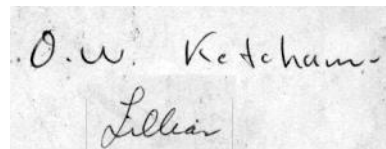 O. W. Ketcham
Lillian